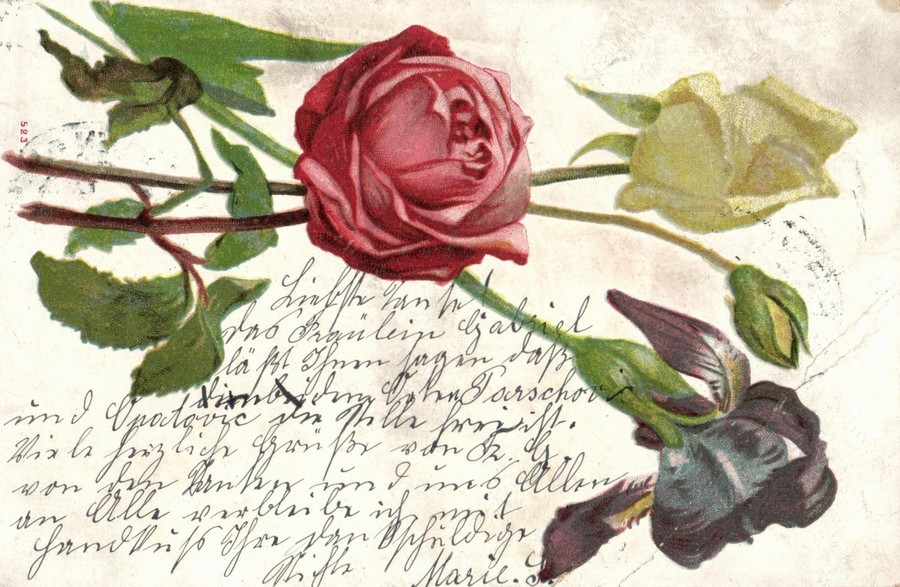 523
Liebste Tante!
das Fräulein Gabriel
läßt Ihnen sagen daß
den Orten Parschovic
und Opatovic die Stelle frei ist.
Viele herzliche Grüße von K. G.
von den Tanten und uns Allen
an Alle verbleibe ich mit
Handkuß Ihre dankschuldige
Nichte Marie. S.